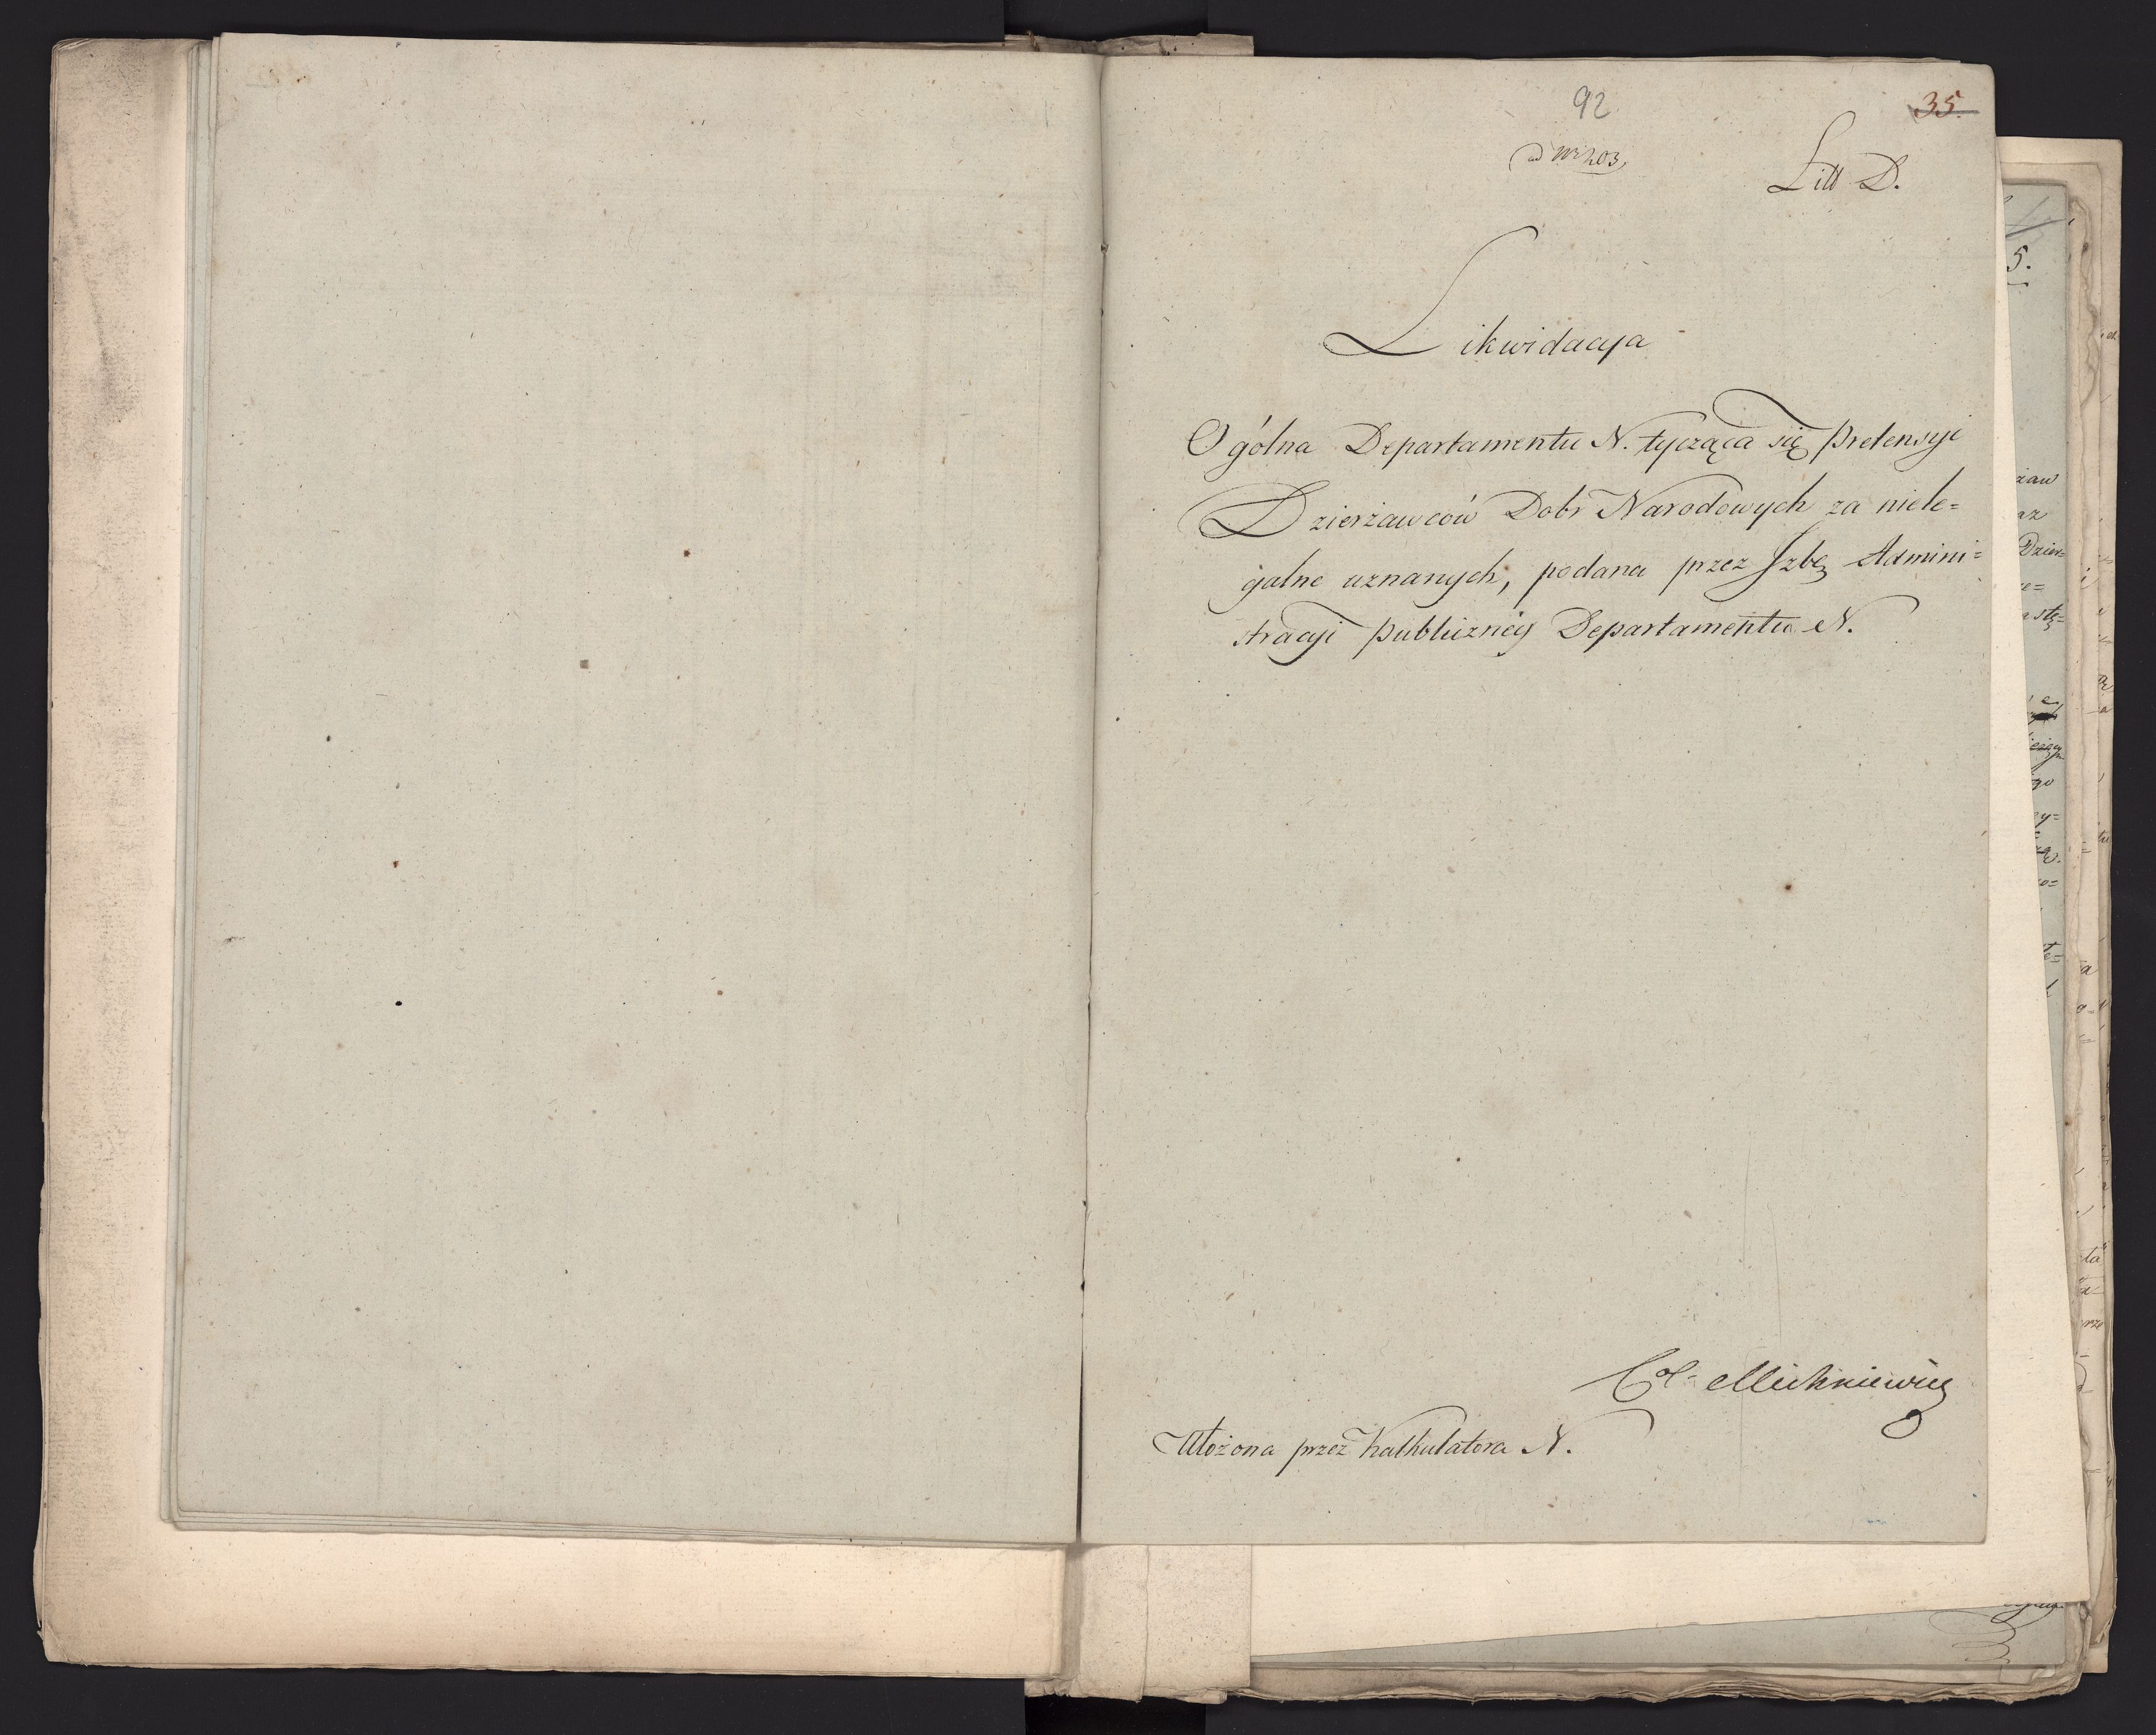 92
35.
ad Nr 203,
Litt D.
Likwidacyja
Ogólna Departamentu N. tycząca się pretensyi
Dzierżawców Dobr Narodowych za niele=
galne uznanych, podana przez Jzbę Admini=
stracyi publiczney Departamentu N.
Col: Michniewicz
Ułożona przez Kalkulatora N.
5.
żaw
Dzier=
stę=
go